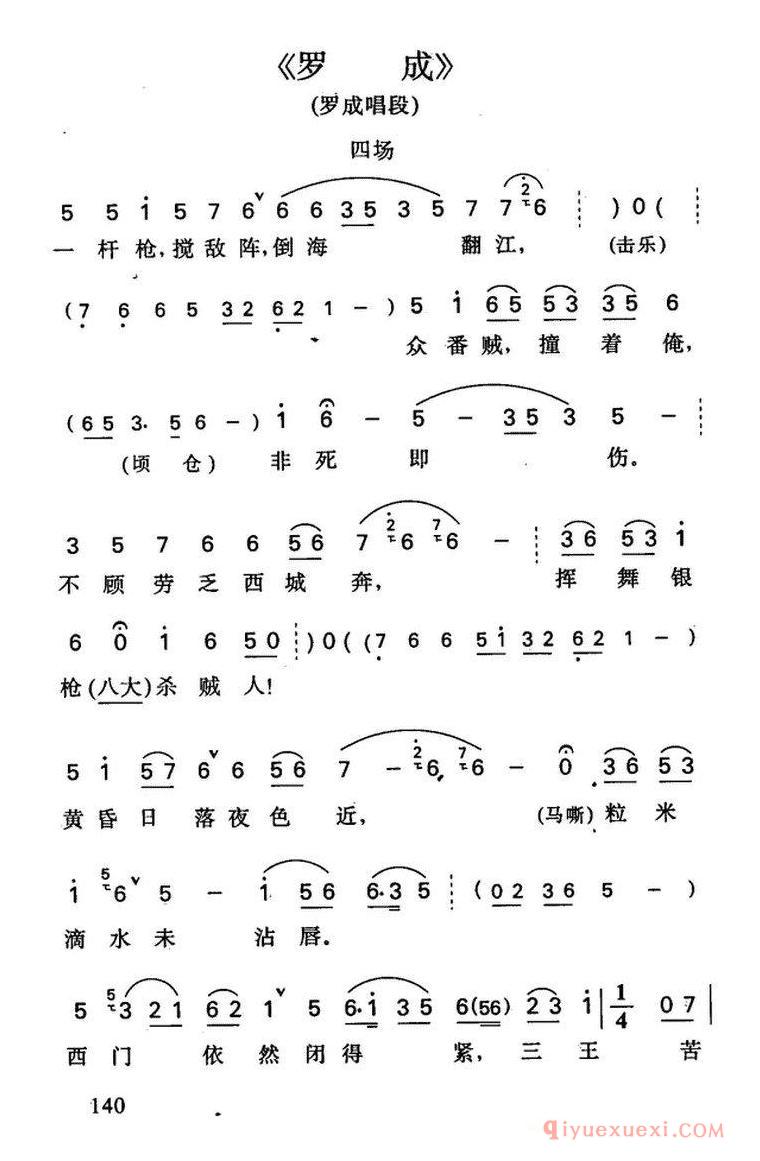 《罗 成》
(罗成唱段)
四场
5 5 i 5 7 6 ˅ 6 6 3 5 3 5 7 7 2 6 ┊ ) 0 ( ┊
一 杆 枪, 搅 敌 阵, 倒 海 翻 江, (击乐)
( 7 6 6 5 3 2 6 2 1 – ) 5 i 6 5 5 3 3 5 6
众 番 贼, 撞 着 俺,
( 6 5 3. 5 6 – ) i 6 – 5 – 3 5 3 5 – ┊
(顷 仓) 非 死 即 伤。
3 5 7 6 6 5 6 7 2 6 7 6 – ┊ 3 6 5 3 i
不 顾 劳 乏 西 城 奔, 挥 舞 银
6 0 i 6 5 0 ┊ ) 0 ( ( 7 6 6 5 i 3 2 6 2 1 – )
枪 (八大) 杀 贼 人!
5 i 5 7 ˅ 6 6 5 6 7 – 2 6 7 6 – 0 3 6 5 3
黄 昏 日 落 夜 色 近, (马嘶) 粒 米
i 5 6 ˅ 5 – i 5 6 6. 3 5 ┊ ( 0 2 3 6 5 – )
滴 水 未 沾 唇。
5 5 3 2 1 6 2 1 ˅ 5 6. i 3 5 6 (56) 2 3 i | 1/4 0 7 |
西 门 依 然 闭 得 紧, 三 王 苦
140
qiyuexuexi.com